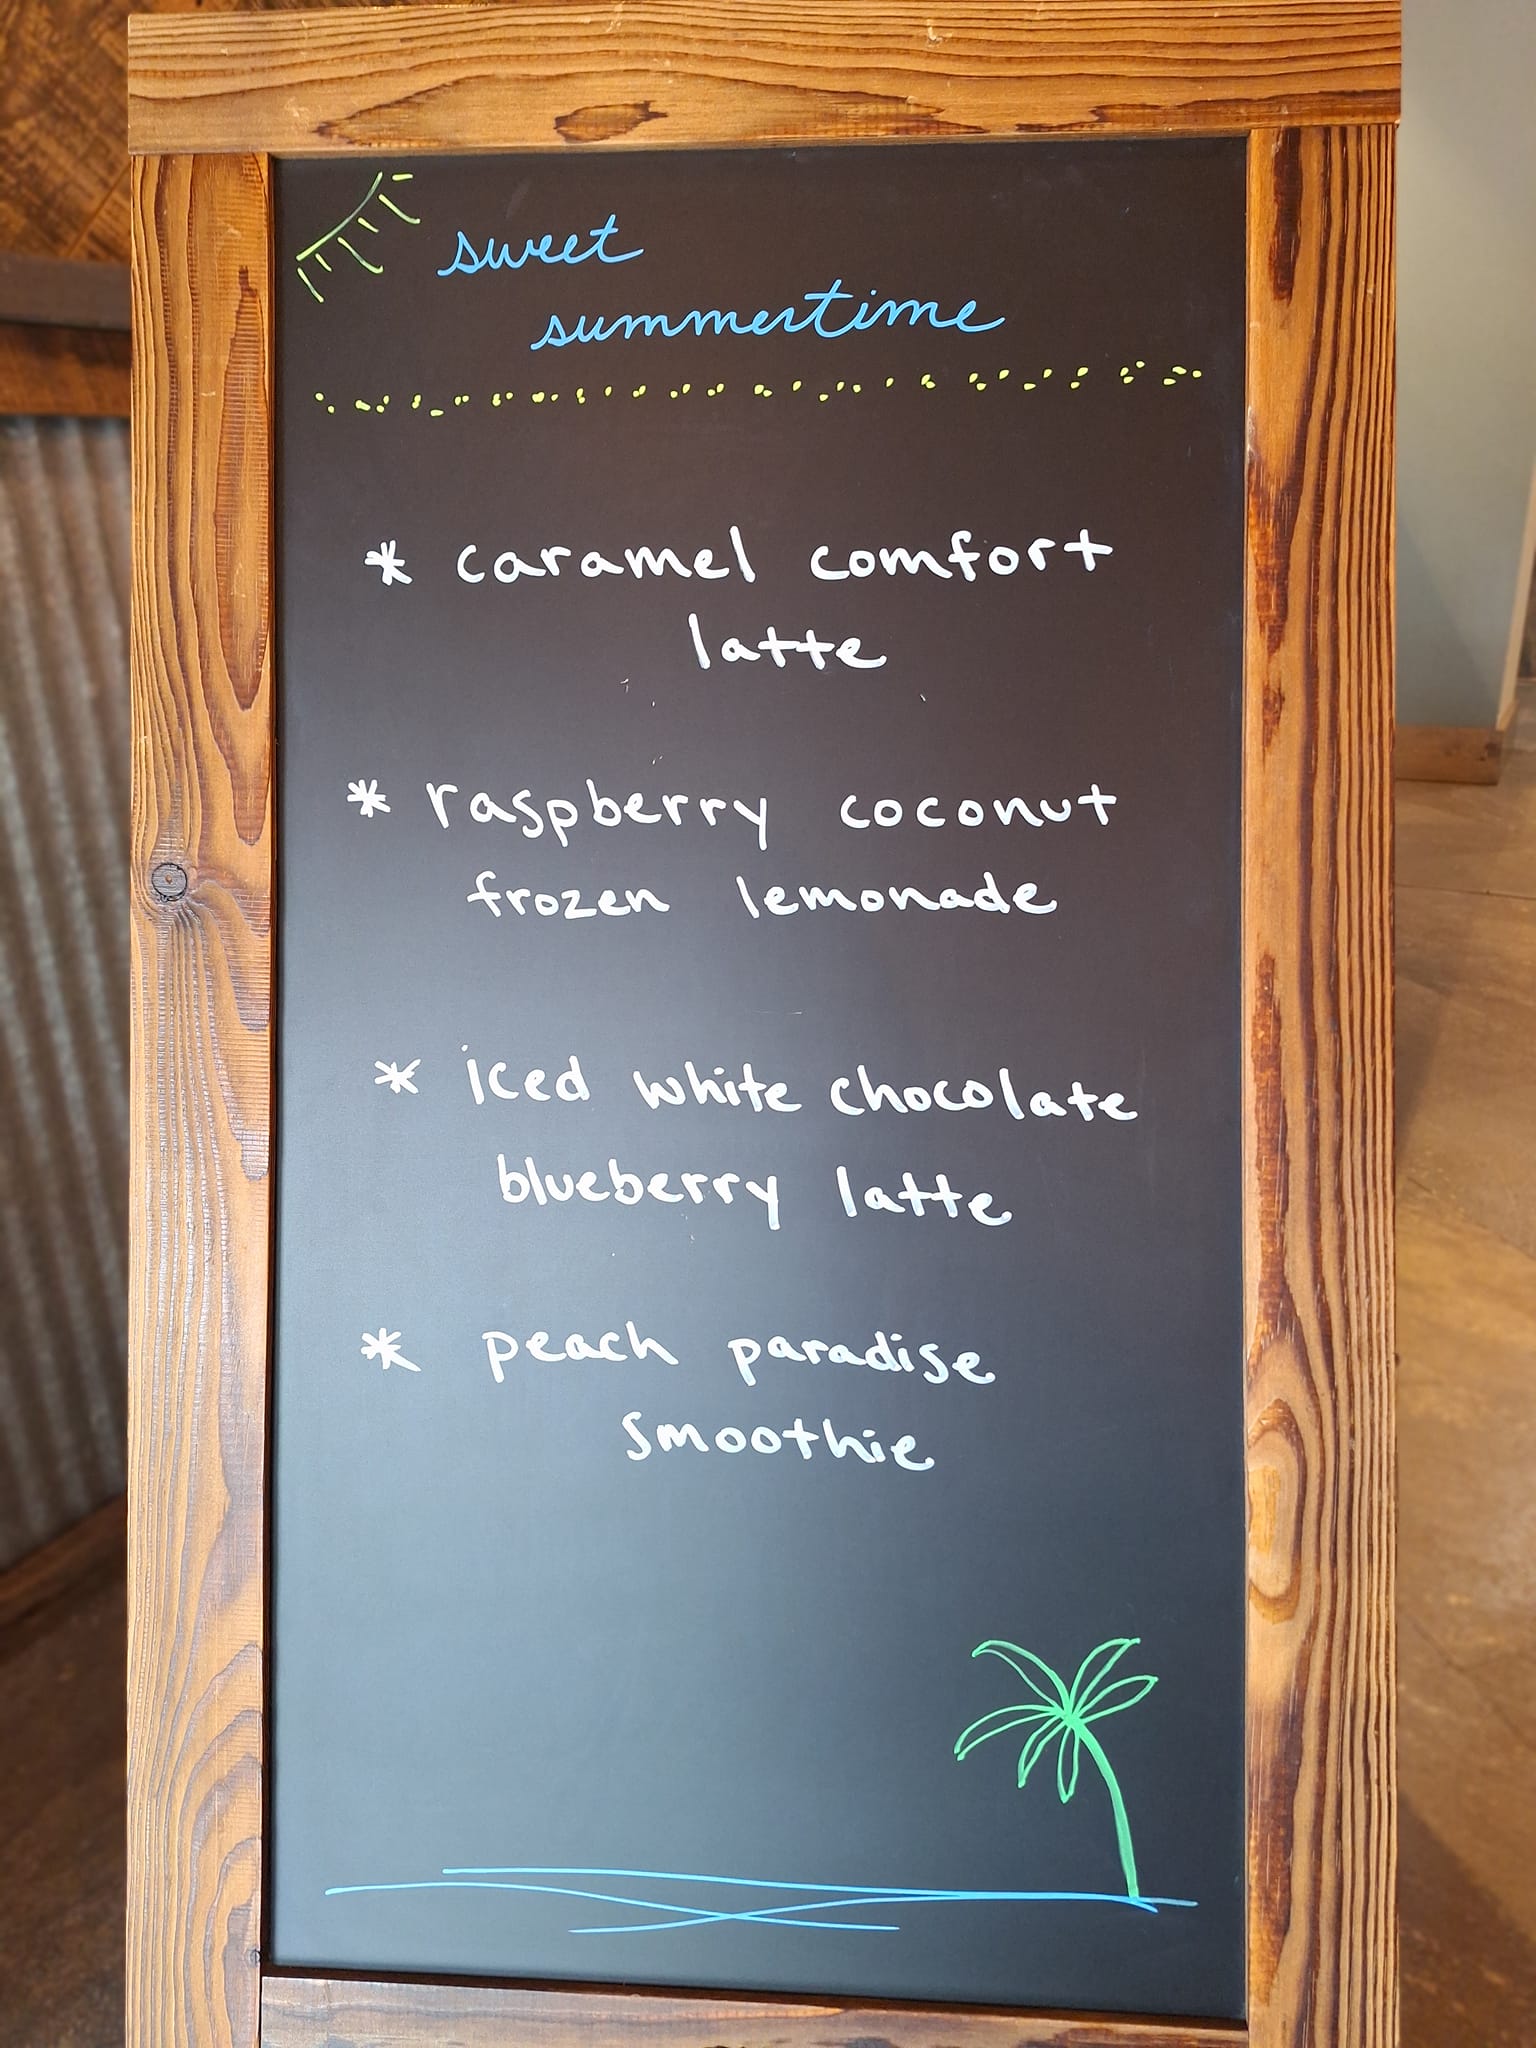 sweet
summertime
* caramel comfort
latte
* raspberry coconut
frozen lemonade
* iced white chocolate
blueberry latte
* peach paradise
smoothie